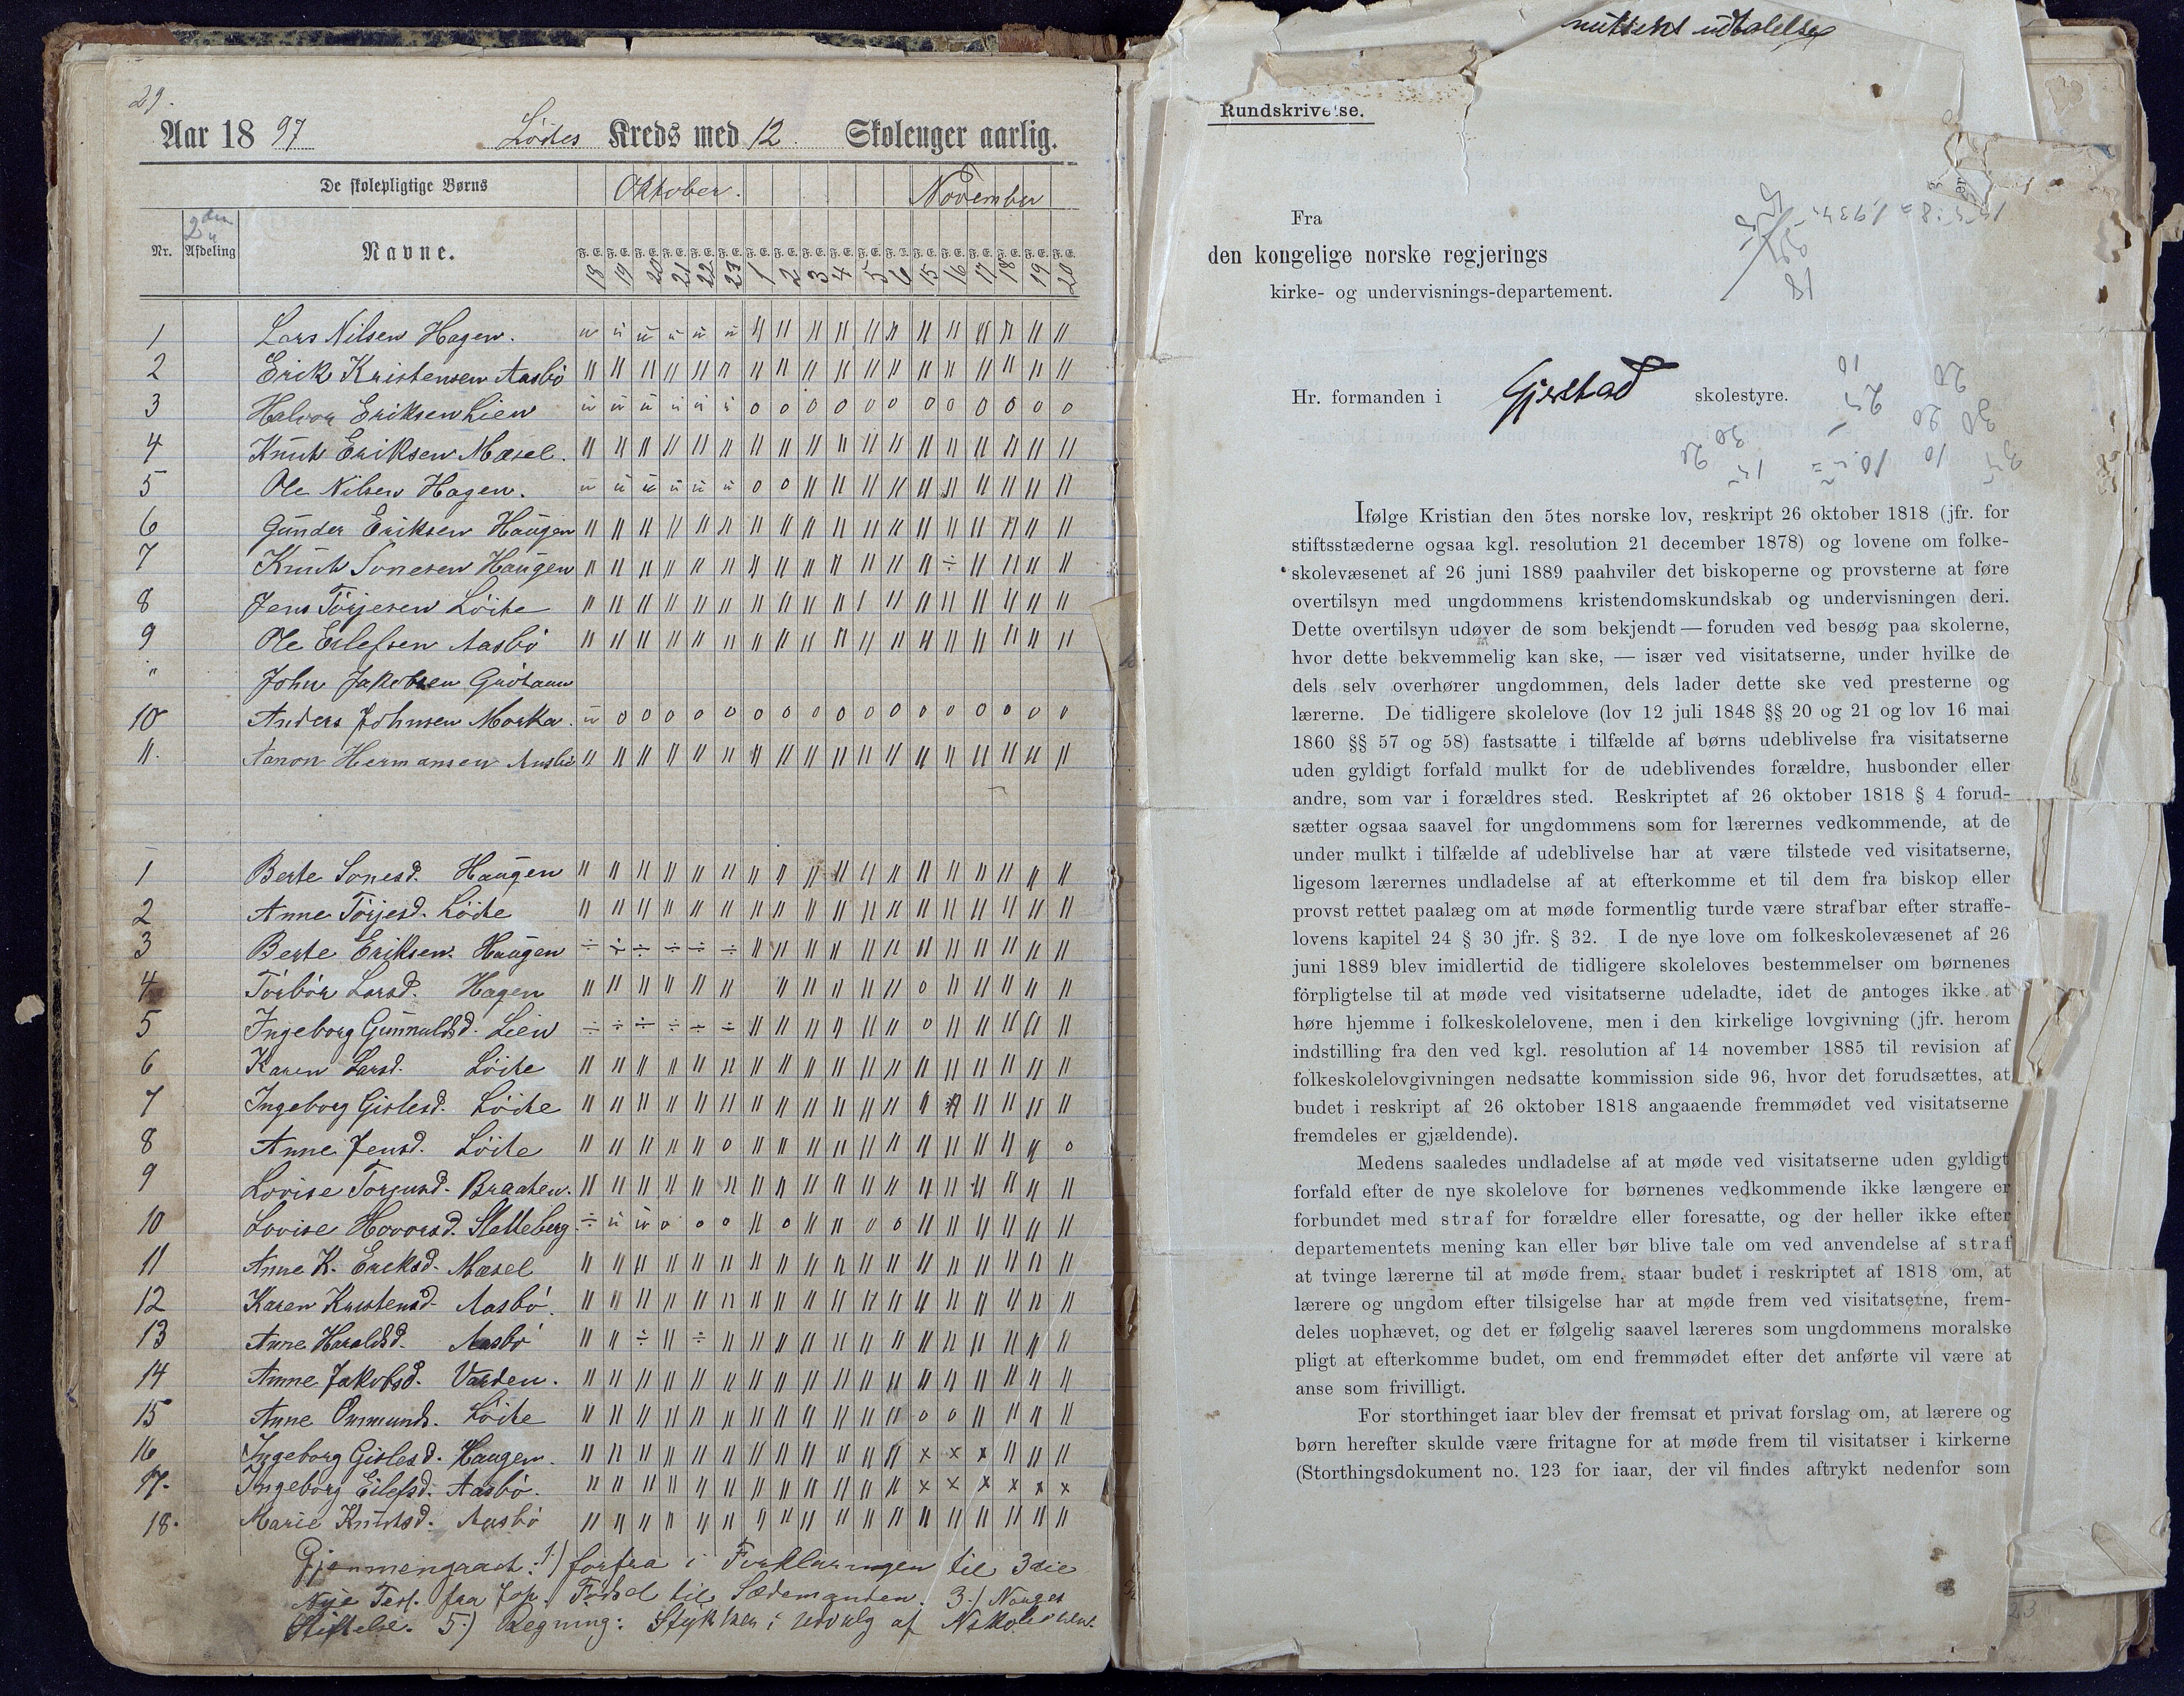 29.
Aar 1897 Löites Kreds med 12. Skoleuger aarlig.
De skolepligtige Børns Oktober. November
Nr. 2den Afdeling Navne. 18 19 20 21 22 23 1 2 3 4 5 6 15 16 17 18 19 20
1 Lars Nilsen Hagen.
2 Erik Kristensen Aasbö
3 Halvor Eriksen Lien
4 Knut Eriksen Mæsel.
5 Ole Nilsen Hagen.
6 Gunder Eriksen Haugen
7 Knut Sonesen Haugen
8 Jens Törjesen Löite
9 Ole Eilefsen Aasbö
" John Jakobsen
10 Anders Johnsen Morka.
11. Aanon Hermansen Aasbö
1 Berte Sonesd. Haugen
2 Anne Törjesd. Löite
3 Berte Eriksen. Haugen
4 Törbör Larsd. Hagen
5 Ingeborg Gunnuldsd. Lien
6 Karen Larsd. Löite
7 Ingeborg Gislesd. Löite
8 Anne Jensd. Löite
9 Lovise Torjusd. Braaten.
10 Lovise Hovorsd. Sletteberg
11 Anne K. Eriksd. Mæsel
12 Karen Kristensd. Aasbö.
13 Anne Haraldsd. Aasbö
14 Anne Jakobsd. Varden.
15 Anne Ommunds. Löite
16 Ingeborg Gislesd. Haugen.
17. Ingeborg Eilefsd. Aasbö.
18. Marie Knutsd. Aasbö
Gjennemgaaet: 1.) forfra i Forklaringen til 3die
Nye Test. fra Jop. Födsel til Sædemanden. 3.) Norges
Stiftelse. 5.) Regning: Stykker i udvalg af
udtalelse
Rundskrivelse.
Fra
den kongelige norske regjerings
kirke- og undervisnings-departement.
Hr. formanden i Gjerstad skolestyre.
Ifølge Kristian den 5tes norske lov, reskript 26 oktober 1818 (jfr. for
stiftsstæderne ogsaa kgl. resolution 21 december 1878) og lovene om folke-
skolevæsenet af 26 juni 1889 paahviler det biskoperne og provsterne at føre
overtilsyn med ungdommens kristendomskundskab og undervisningen deri.
Dette overtilsyn udøver de som bekjendt — foruden ved besøg paa skolerne,
hvor dette bekvemmelig kan ske, — især ved visitatserne, under hvilke de
dels selv overhører ungdommen, dels lader dette ske ved presterne og
lærerne. De tidligere skolelove (lov 12 juli 1848 §§ 20 og 21 og lov 16 mai
1860 §§ 57 og 58) fastsatte i tilfælde af børns udeblivelse fra visitatserne
uden gyldigt forfald mulkt for de udeblivendes forældre, husbonder eller
andre, som var i forældres sted. Reskriptet af 26 oktober 1818 § 4 forud-
sætter ogsaa saavel for ungdommens som for lærernes vedkommende, at de
under mulkt i tilfælde af udeblivelse har at være tilstede ved visitatserne,
ligesom lærernes undladelse af at efterkomme et til dem fra biskop eller
provst rettet paalæg om at møde formentlig turde være strafbar efter straffe-
lovens kapitel 24 § 30 jfr. § 32. I de nye love om folkeskolevæsenet af 26
juni 1889 blev imidlertid de tidligere skoleloves bestemmelser om børnenes
førpligtelse til at møde ved visitatserne udeladte, idet de antoges ikke at
høre hjemme i folkeskolelovene, men i den kirkelige lovgivning (jfr. herom
indstilling fra den ved kgl. resolution af 14 november 1885 til revision af
folkeskolelovgivningen nedsatte kommission side 96, hvor det forudsættes, at
budet i reskript af 26 oktober 1818 angaaende fremmødet ved visitatserne
fremdeles er gjældende).
Medens saaledes undladelse af at møde ved visitatserne uden gyldigt
forfald efter de nye skolelove for børnenes vedkommende ikke længere er
forbundet med straf for forældre eller foresatte, og der heller ikke efter
departementets mening kan eller bør blive tale om ved anvendelse af straf
at tvinge lærerne til at møde frem, staar budet i reskriptet af 1818 om, at
lærere og ungdom efter tilsigelse har at møde frem ved visitatserne, frem-
deles uophævet, og det er følgelig saavel læreres som ungdommens moralske
pligt at efterkomme budet, om end fremmødet efter det anførte vil være at
anse som frivilligt.
For storthinget iaar blev der fremsat et privat forslag om, at lærere og
børn herefter skulde være fritagne for at møde frem til visitatser i kirkerne
(Storthingsdokument no. 123 for iaar, der vil findes aftrykt nedenfor som